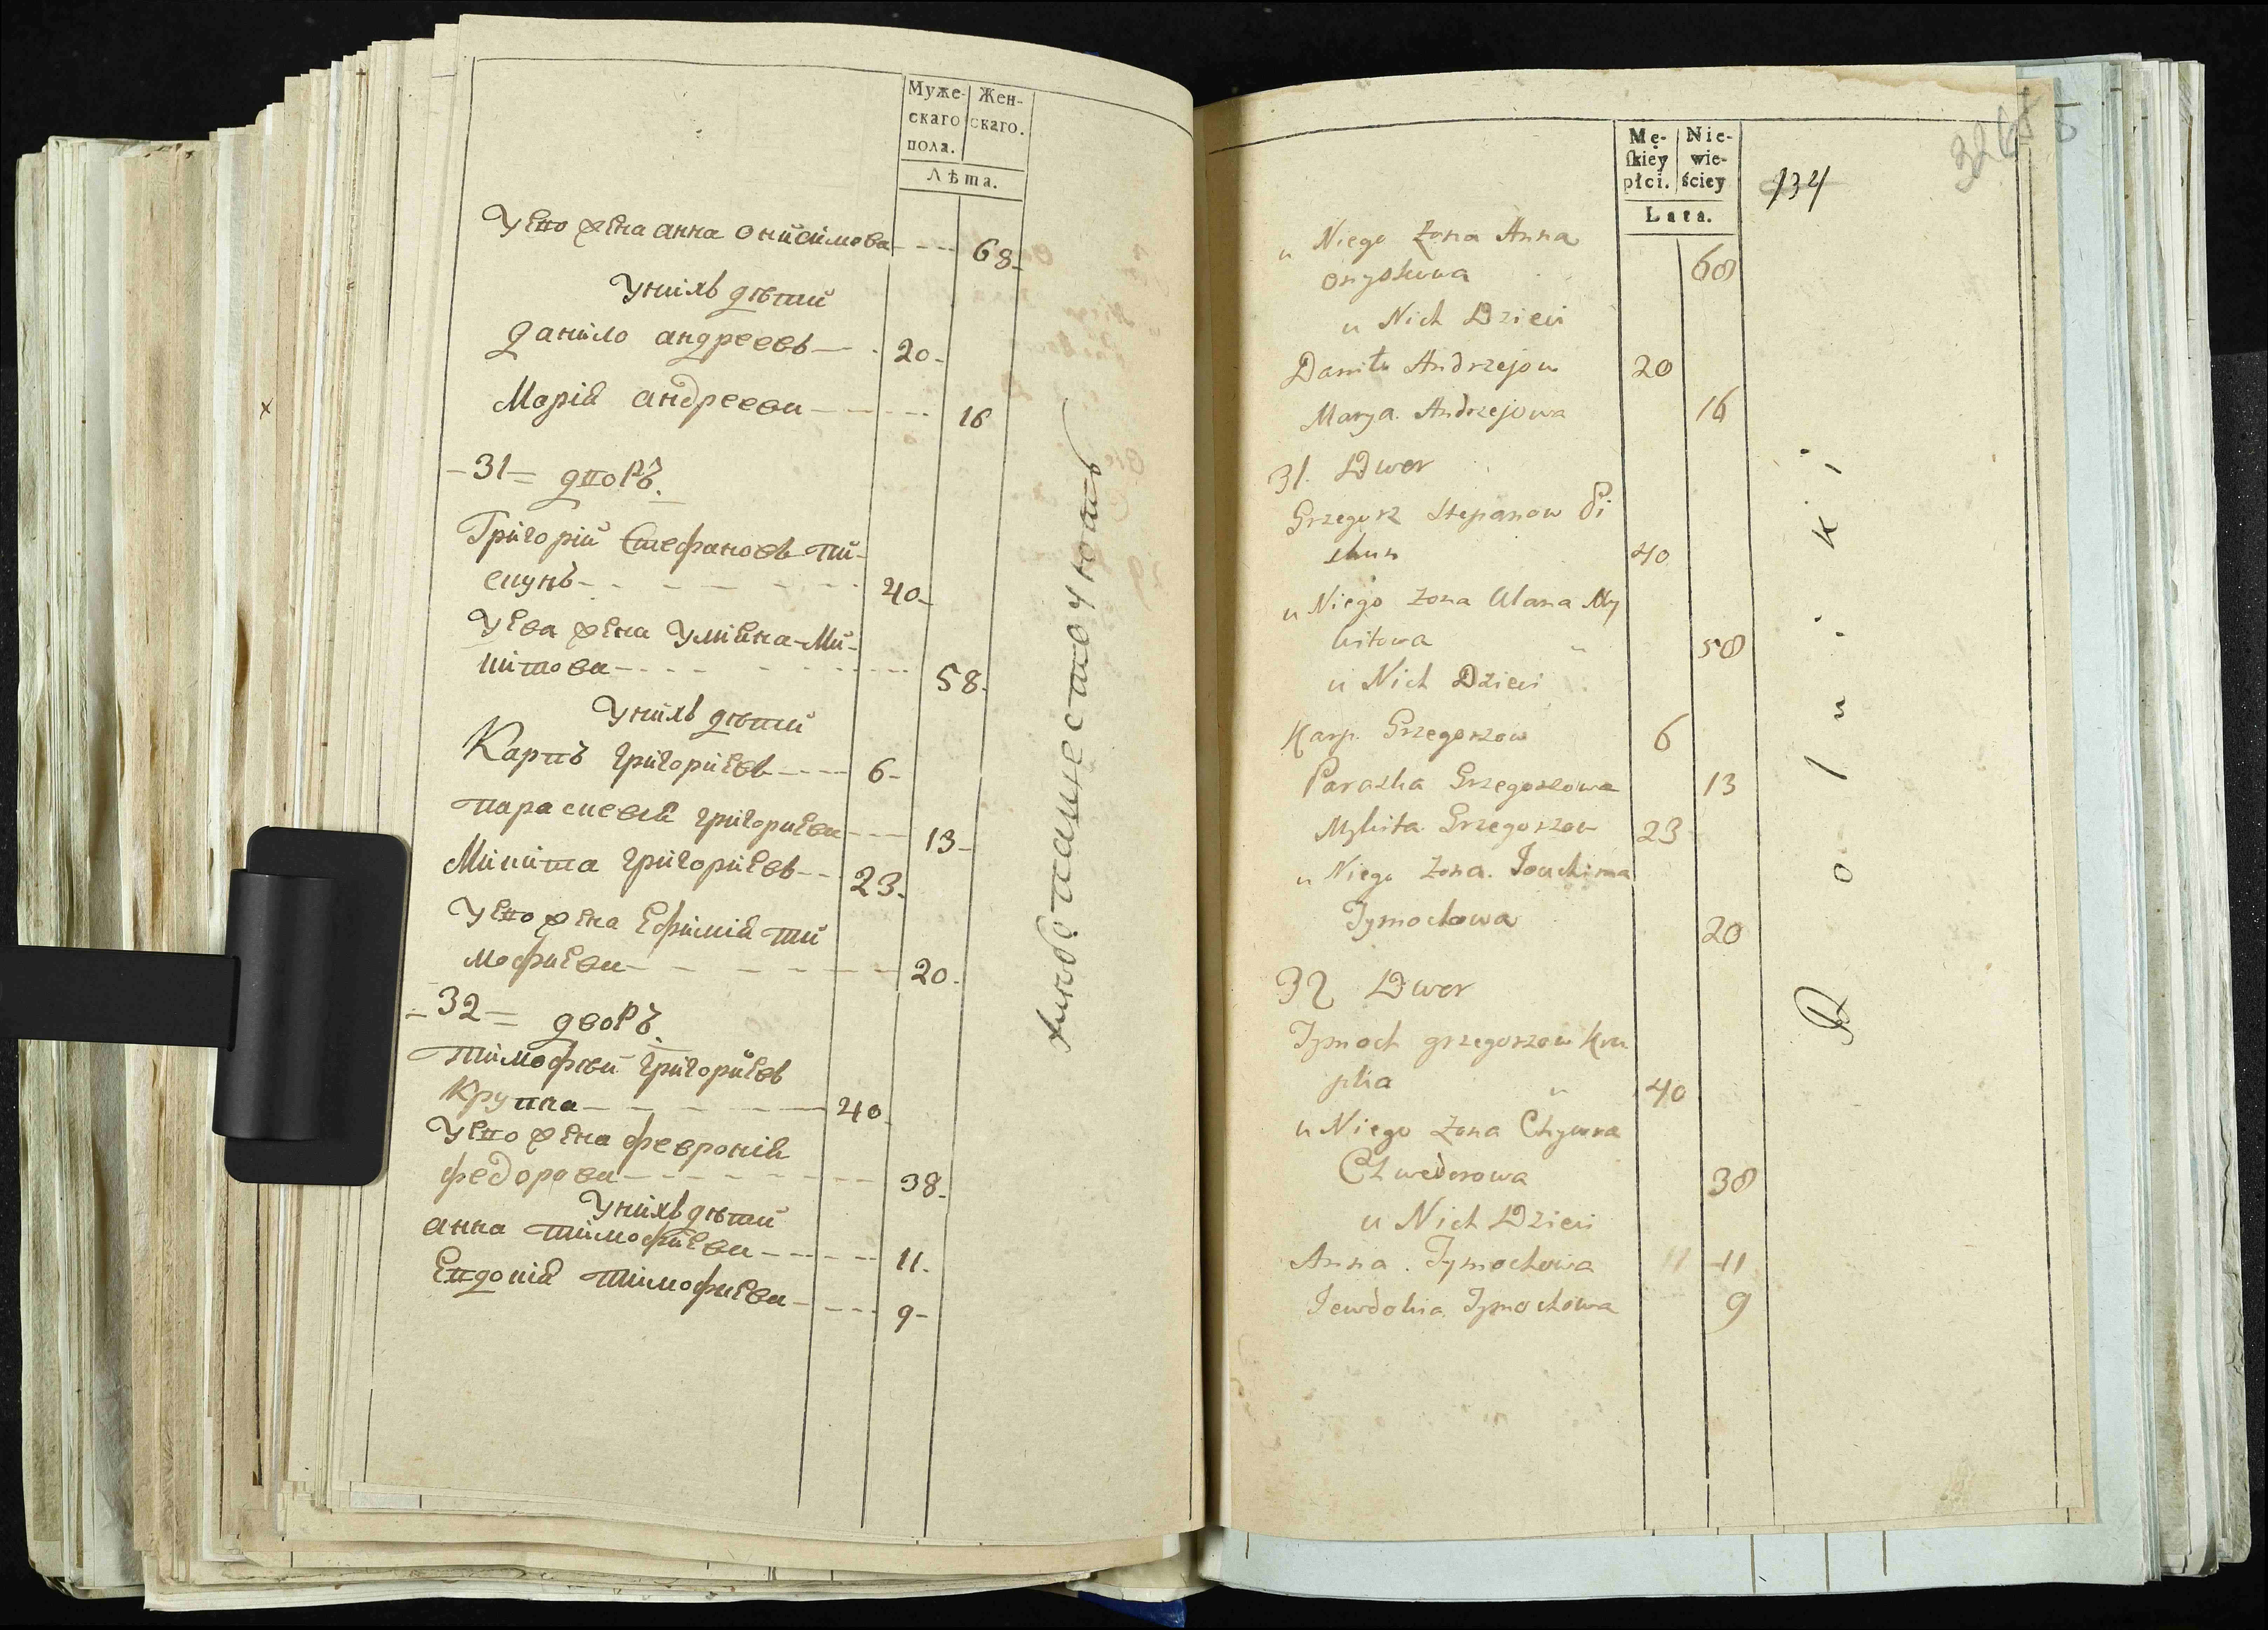 Муже-
скаго
пола.
Жен-
скаго.
Лѣта.
Уево жена анна онисимова 68
Унихъ дѣти
данило андреевъ 20
Марія андреева 16
31 дворъ
Григорій Стефановъ пи-
скунъ 40
Уево жена Уліяна Ми-
китова 58
Унихъ дѣти
Карпъ григориевъ 6
параскевія григориева 13
Микита григориевъ 23
Уево жена Ефимія ти
мофиева 20
32 дворъ
тимофѣй григориевъ
Крупка 40
Уево жена февронія
федорова 38
Унихъ дѣти
анна тимофиева 11
Евдокія тимофиева 9
Mę-
skiey
płci.
Nie-
wie-
ściey
Lata.
134
u Niego Zona Anna
Onyskowa 68
u Nich Dzieci
Daniło Andrzejow 20
Marya Andrzejowa 16
31. Dwor
Grzegorz Stepanow Pi
skun 40
u Niego Zona Ulana My
kitowa 58
u Nich Dzieci
Karp Grzegorzow 6
Paraska Grzegorzowa 13
Mykita Grzegorzow 23
u Niego Zona Jouchima
Tymochowa 20
32 Dwor
Tymoch grzegorzow Kru
pka 40
u Niego Zona Chywra
Chwedorowa 38
u Nich Dzieci
Anna Tymochowa 11
Jewdokia Tymochowa 9